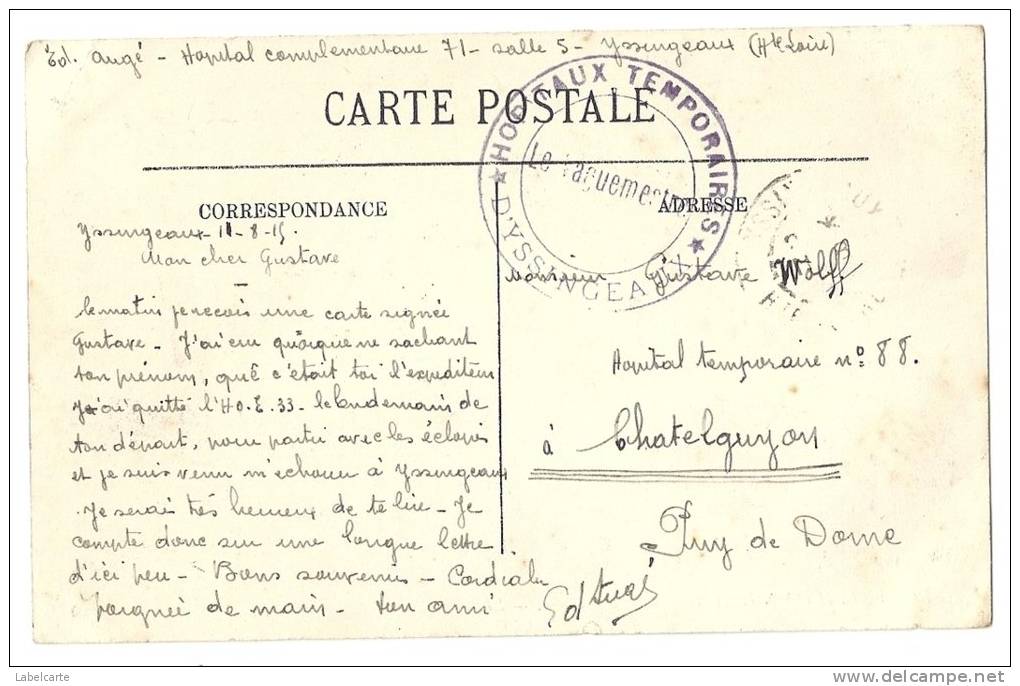 Ed. Augé - Hopital complementaire 71 - salle 5 - Yssingeaux (Hte Loire)
CARTE POSTALE
★ HOPITAUX TEMPORAIRES ★
D'YSSINGEAUX
Le Vaguemestre
CORRESPONDANCE
Yssingeaux 11-8-15
Mon cher Gustave
le matin je reçois une carte signée
Gustave - J'ai cru quoique ne sachant
ton prénom, que c'était toi l'expediteur
J'ai quitté l'HO.E.33 - le lendemain de
ton départ, pour partir avec les éclopés
et je suis venu m'echouer à Yssingeaux
Je serais très heureux de te lire - Je
compte donc sur une longue lettre
d'ici peu - Bons souvenirs - Cordiale
poignée de main - ton ami
Ed Augé
ADRESSE
Monsieur Gustave Wolff
Hopital temporaire nº 88.
à Chatelguyon
Puy de Dome
Labelcarte
delcampe.net